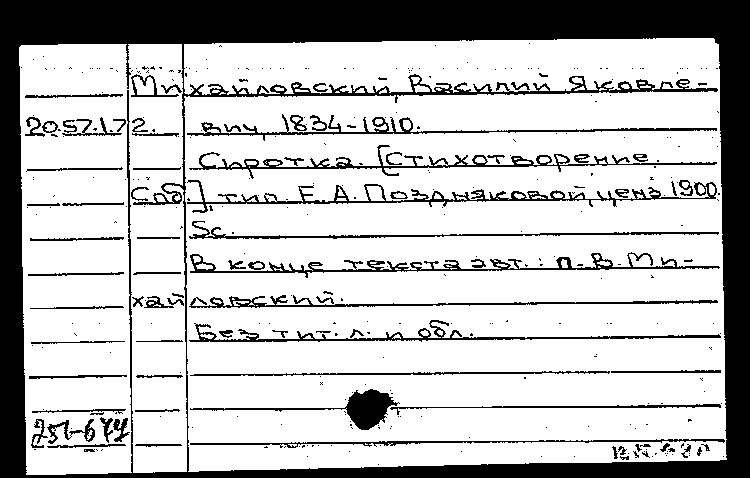 Михайловский, Василий Яковле-
20.57.1.72. вич, 1834-1910.
Сиротка. [Стихотворение.
Спб.], тип. Е. А. Поздняковой, ценз. 1900.
5с.
В конце текста авт.: п. В. Ми-
хайловский.
Без тит. л. и обл.